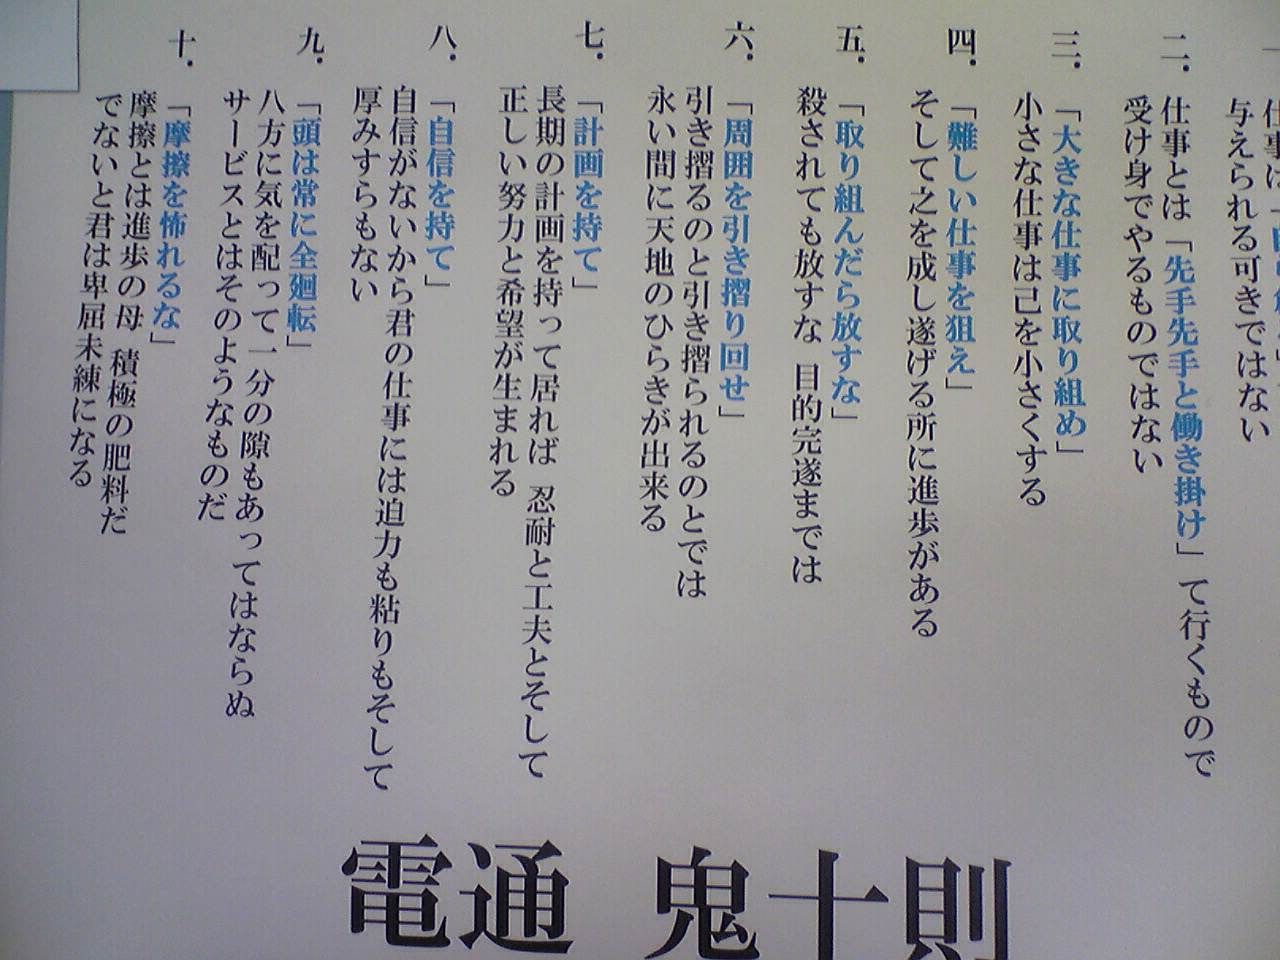 与えられる可きではない
二.
仕事とは「先手先手と働き掛け」て行くもので
受け身でやるものではない
三.
「大きな仕事に取り組め」
小さな仕事は己を小さくする
四.
「難しい仕事を狙え」
そして之を成し遂げる所に進歩がある
五.
「取り組んだら放すな」
殺されても放すな 目的完遂までは
六.
「周囲を引き摺り回せ」
引き摺るのと引き摺られるのとでは
永い間に天地のひらきが出来る
七.
「計画を持て」
長期の計画を持って居れば 忍耐と工夫とそして
正しい努力と希望が生まれる
八.
「自信を持て」
自信がないから君の仕事には迫力も粘りもそして
厚みすらもない
九.
「頭は常に全廻転」
八方に気を配って一分の隙もあってはならぬ
サービスとはそのようなものだ
十.
「摩擦を怖れるな」
摩擦とは進歩の母 積極の肥料だ
でないと君は卑屈未練になる
電通 鬼十則